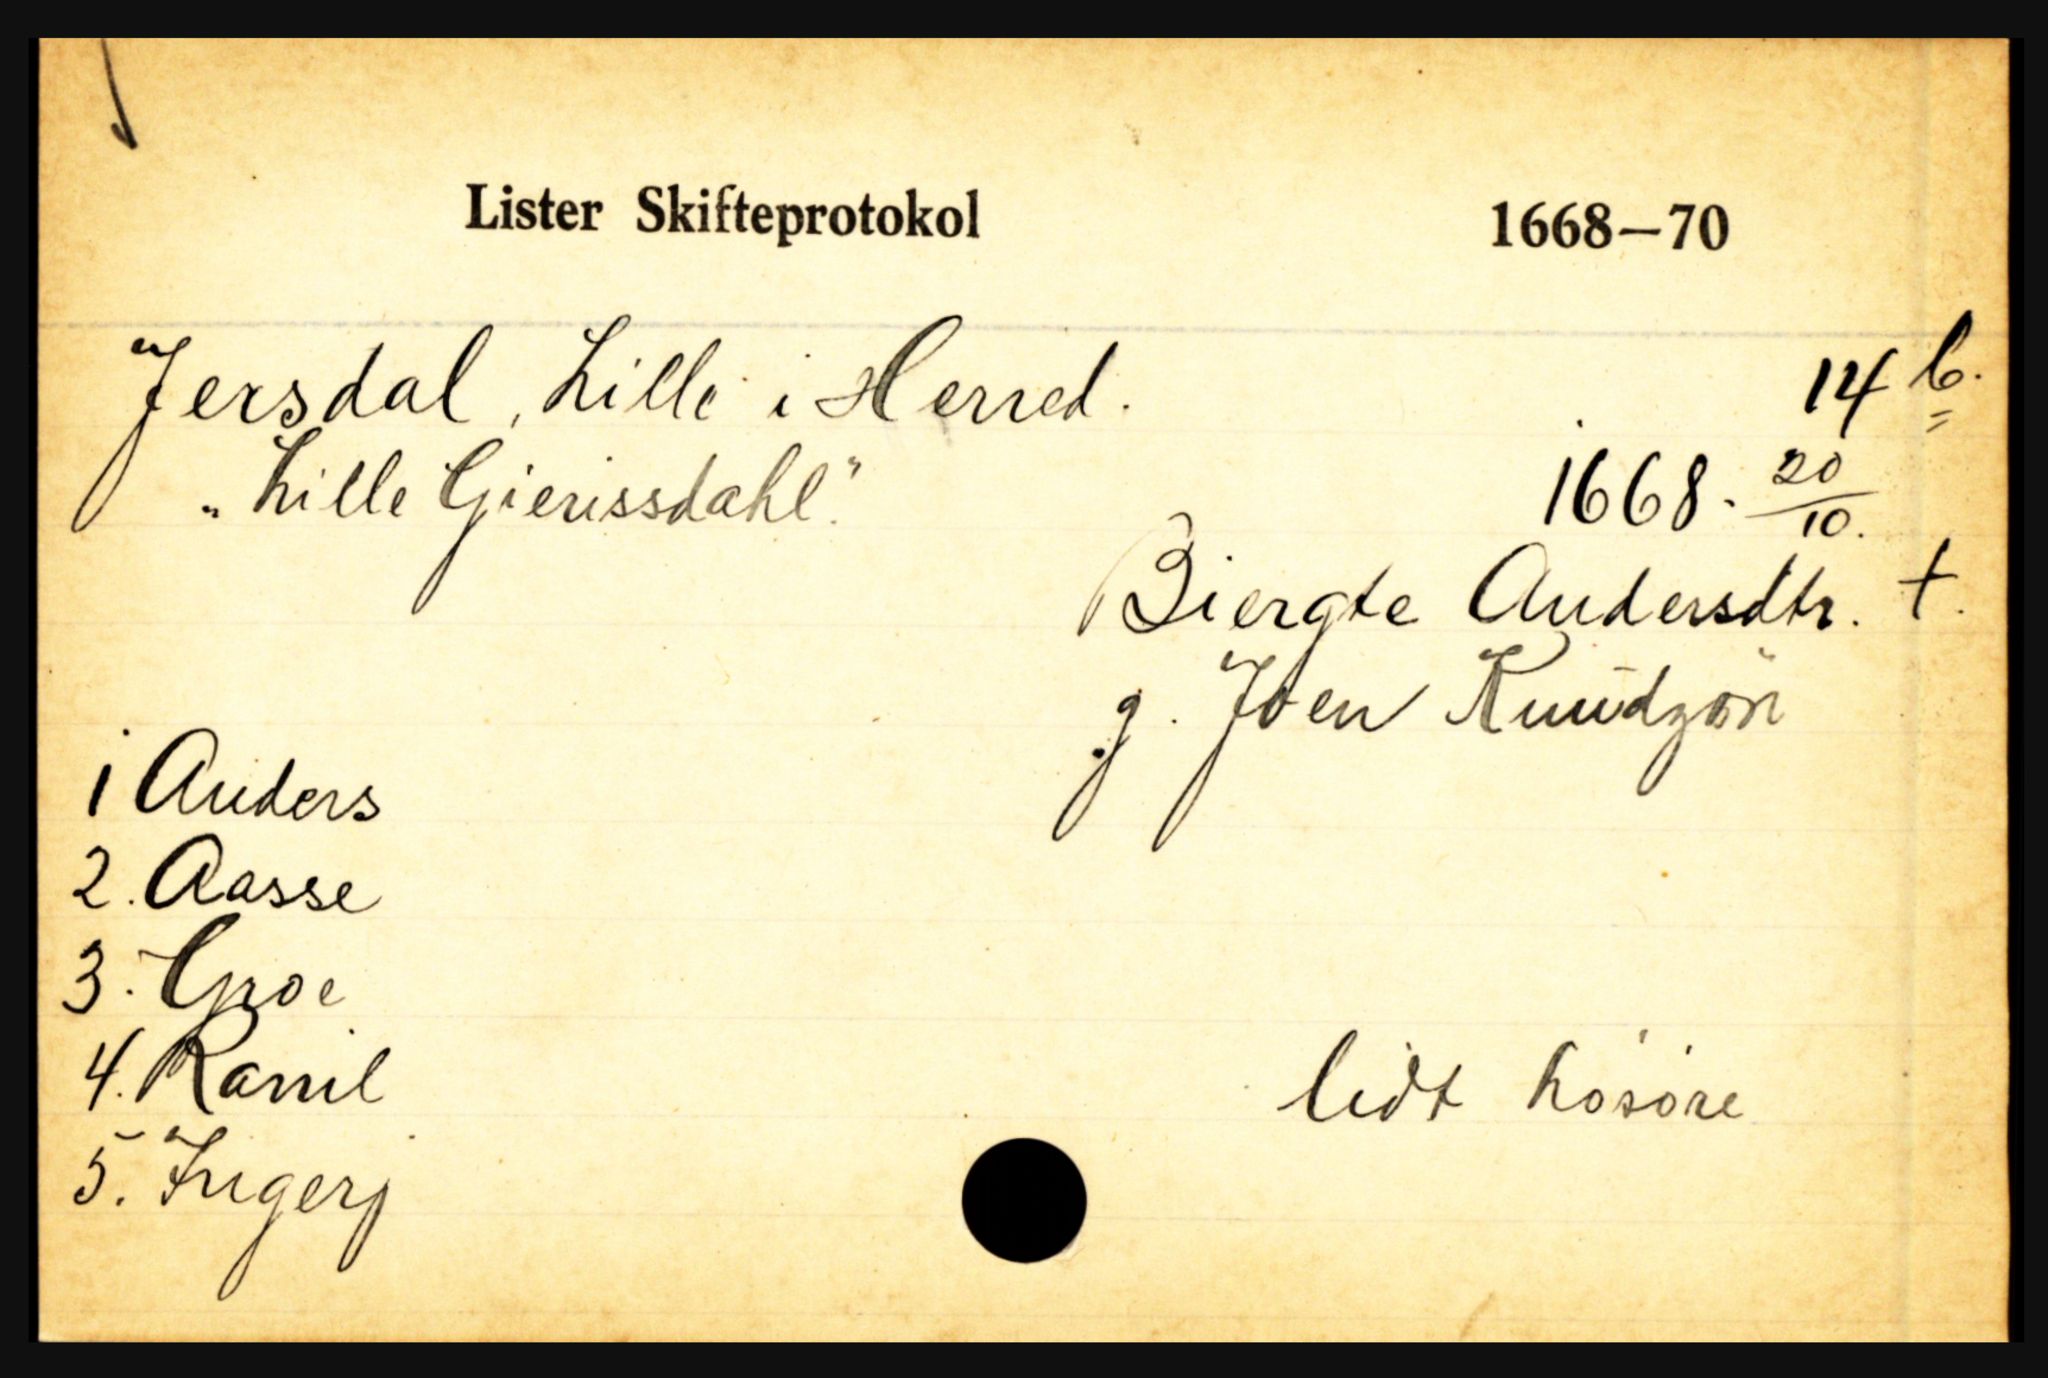 Lister Skifteprotokol 1668—70
Jersdal, Lille i Herred. 14 b.
"Lille Gierissdahl." 1668. 20/10.
Biergte Andersdtr. †.
g. Joen Knudzøn
1 Anders
2. Aasse
3. Groe
4. Ranil
lidt høsøre
5. Ingerj